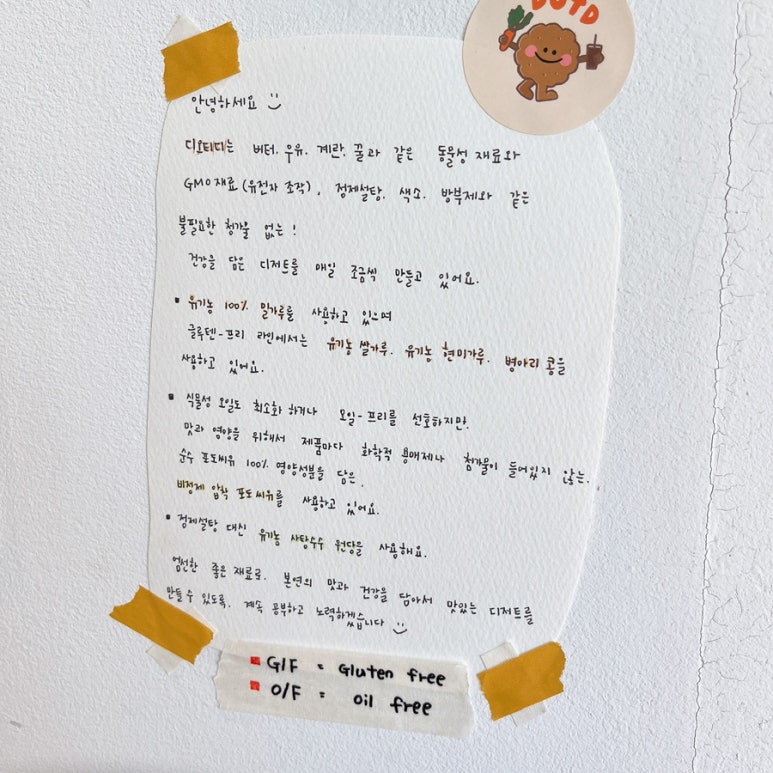 DOTD
안녕하세요 :)
디오티디는 버터, 우유, 계란, 꿀과 같은 동물성 재료와
GMO재료(유전자 조작), 정제설탕, 색소, 방부제와 같은
불필요한 첨가물 없는!
건강을 담은 디저트를 매일 조금씩 만들고 있어요.
▪ 유기농 100% 밀가루를 사용하고 있으며
글루텐-프리 라인에서는 유기농 쌀가루, 유기농 현미가루, 병아리 콩을
사용하고 있어요.
▪ 식물성 오일도 최소화 하거나 오일-프리를 선호하지만,
맛과 영양을 위해서 제품마다 화학적 용매제나 첨가물이 들어있지 않는,
순수 포도씨유 100% 영양성분을 담은,
비정제 압착 포도씨유를 사용하고 있어요.
▪ 정제설탕 대신 유기농 사탕수수 원당을 사용해요.
엄선한 좋은 재료로, 본연의 맛과 건강을 담아서 맛있는 디저트를
만들 수 있도록, 계속 공부하고 노력하겠습니다 :)
▪ G/F = Gluten free
▪ O/F = oil free